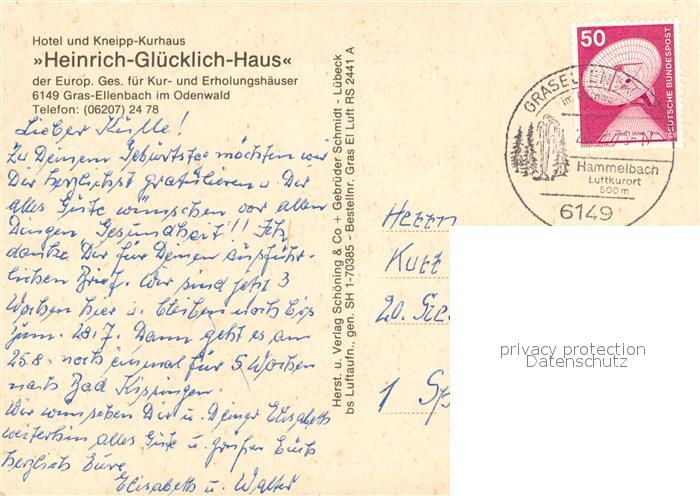 Hotel und Kneipp-Kurhaus
»Heinrich-Glücklich-Haus«
der Europ. Ges. für Kur- und Erholungshäuser
6149 Gras-Ellenbach im Odenwald
Telefon: (06207) 24 78
Lieber
Zu Deinem Geburtstag möchten wir
Dir herzlichst gratulieren u. Dir
alles Gute wünschen vor allen
Dingen Gesundheit!! Ich
danke Dir für Deinen ausführ-
lichen Brief. Wir sind jetzt 3
Wochen hier u. bleiben noch bis
zum 28.7. Dann geht es am
25.8. noch einmal für 5 Wochen
nach Bad Kissingen.
Wir wünschen Dir u. Deiner Elisabeth
weiterhin alles Gute u. grüßen Euch
herzlich Eure
Elisabeth u. Walter
Herst. u. Verlag Schöning & Co + Gebrüder Schmidt - Lübeck
bs Luftaufn., gen. SH 1-70385 - Bestellnr. Gras El Luft RS 2441 A
50
DEUTSCHE BUNDESPOST
GRASELLENBACH
Hammelbach
Luftkurort
500 m
6149
Herrn
Kurt
20.
1
privacy protection
Datenschutz